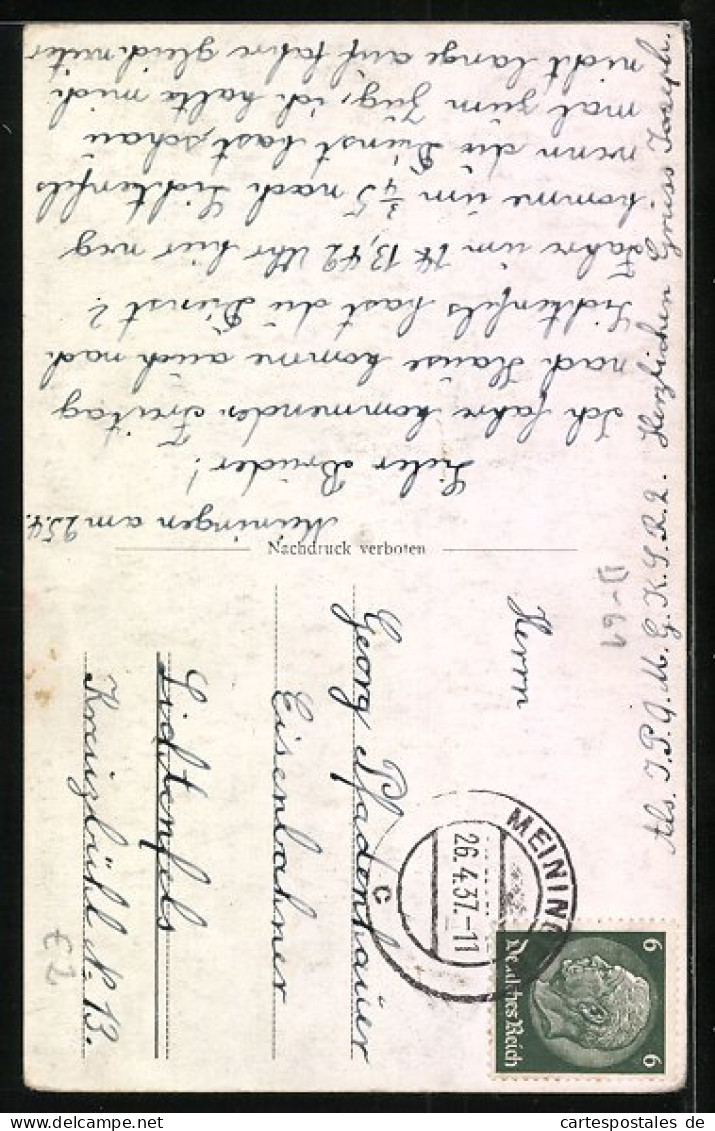 Meiningen am 25.4.
Lieber Bruder!
Ich fahre kommenden Freitag
nach Hause komme auch nach
Lichtenfels hast du Dienst?
Fahre um 14 13,42 Uhr hier weg
komme um ¾5 nach Lichtenfels
wenn du Dienst hast, schau
mal zum Zug, ich halte mich
nicht lange auf fahre gleich weiter
Als. I.P.A.M.G.K.S.R.2. Herzlichen Gruss Joseph.
Nachdruck verboten
D-61
Herrn
Georg Pfadenhauer
Eisenbahner
Lichtenfels
Kreuzbühl N. 13.
€2
MEINING
26.4.37.-11
c
6 6
Deutsches Reich
cartespostales de